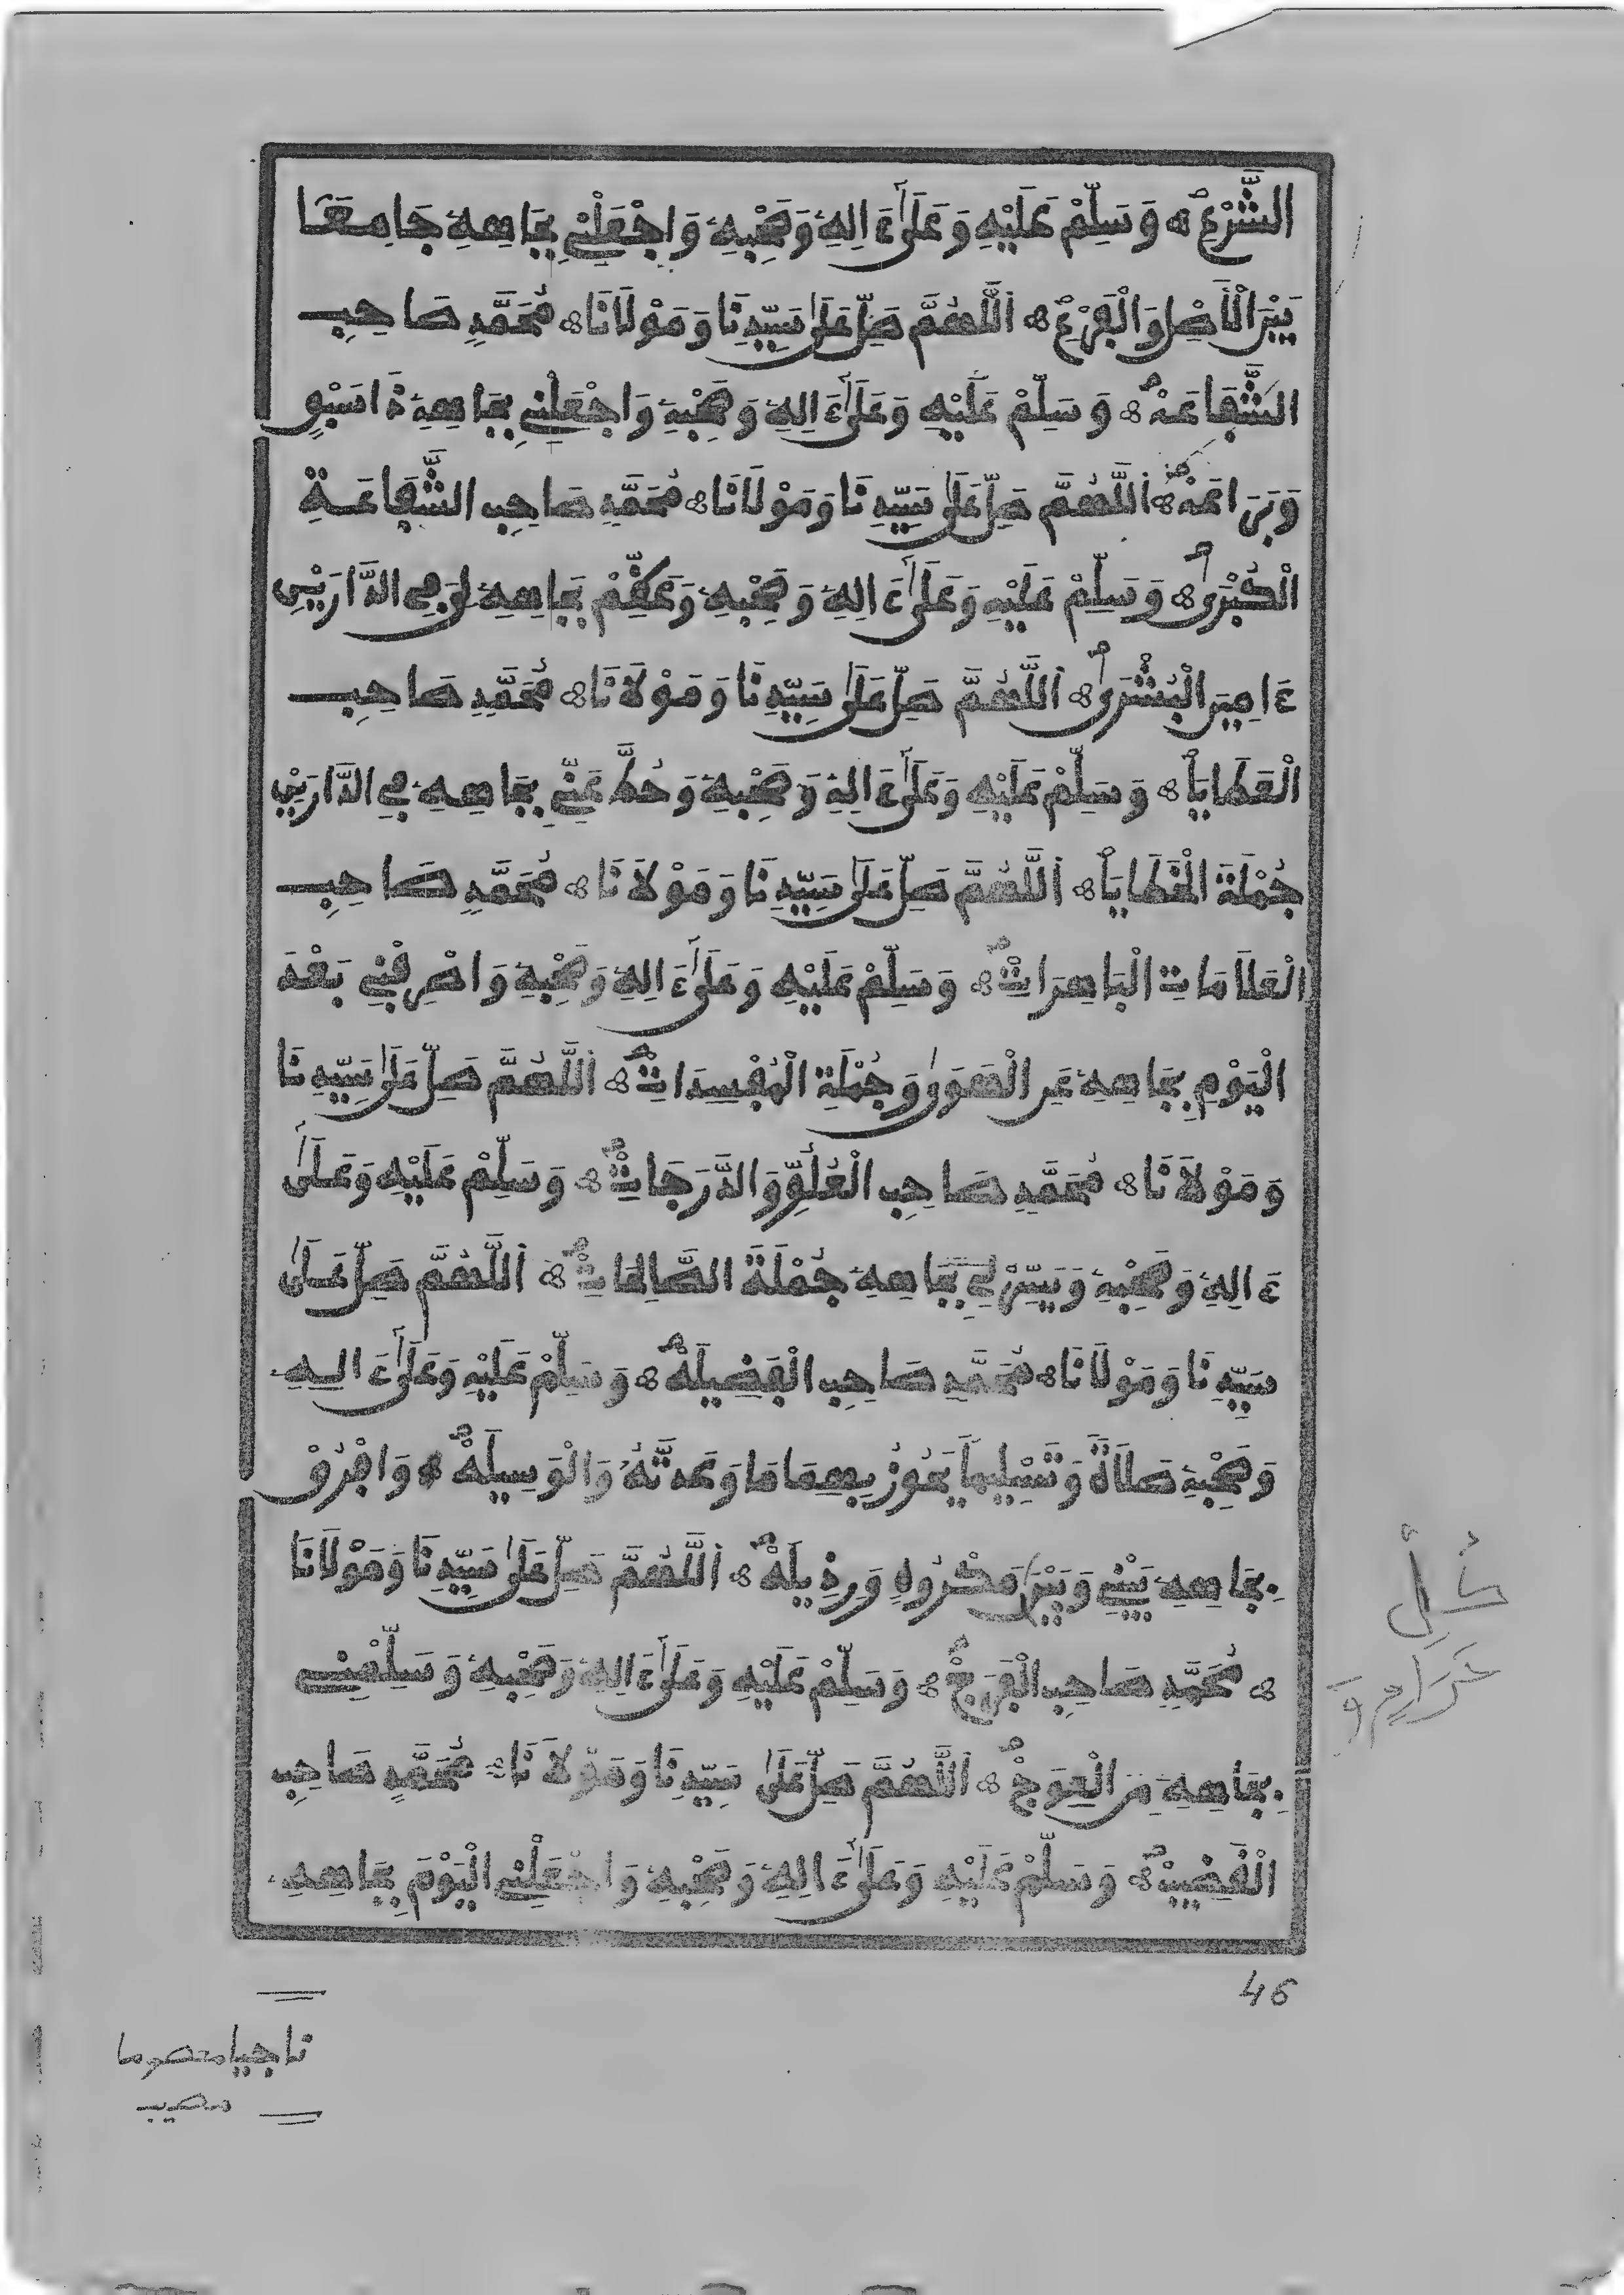 الشَّرْعِ وَسَلِّمْ عَلَيْهِ وَعَلَىٰ ءَالِهِ وَصَحْبِهِ وَاجْعَلْنِي بِجَاهِهِ جَامِعًا
بَيْنَ الْأَصْلِ وَالْفَرْعِ اَللَّهُمَّ صَلِّ عَلَىٰ سَيِّدِنَا وَمَوْلَانَا مُحَمَّدٍ صَاحِبِ
الشَّفَاعَهْ وَسَلِّمْ عَلَيْهِ وَعَلَىٰ ءَالِهِ وَصَحْبِهِ وَاجْعَلْنِي بِجَاهِهِ ذَا سَبْقٍ
وَبَرَاعَهْ اَللَّهُمَّ صَلِّ عَلَىٰ سَيِّدِنَا وَمَوْلَانَا مُحَمَّدٍ صَاحِبِ الشَّفَاعَةِ
الْكُبْرَىٰ وَسَلِّمْ عَلَيْهِ وَعَلَىٰ ءَالِهِ وَصَحْبِهِ وَعَظِّمْ بِجَاهِهِ لِي فِي الدَّارَيْنِ
ءَامِينَ الْبُشْرَىٰ اَللَّهُمَّ صَلِّ عَلَىٰ سَيِّدِنَا وَمَوْلَانَا مُحَمَّدٍ صَاحِبِ
الْعَطَايَا وَسَلِّمْ عَلَيْهِ وَعَلَىٰ ءَالِهِ وَصَحْبِهِ وَحُطَّ عَنِّي بِجَاهِهِ فِي الدَّارَيْنِ
جُمْلَةَ الْخَطَايَا اَللَّهُمَّ صَلِّ عَلَىٰ سَيِّدِنَا وَمَوْلَانَا مُحَمَّدٍ صَاحِبِ
الْعَلَامَاتِ الْبَاهِرَاتِ وَسَلِّمْ عَلَيْهِ وَعَلَىٰ ءَالِهِ وَصَحْبِهِ وَاصْرِفْنِي بَعْدَ
الْيَوْمِ بِجَاهِهِ عَنِ الْهَوَىٰ وَجُمْلَةِ الْمُفْسِدَاتِ اَللَّهُمَّ صَلِّ عَلَىٰ سَيِّدِنَا
وَمَوْلَانَا مُحَمَّدٍ صَاحِبِ الْعُلُوِّ وَالدَّرَجَاتِ وَسَلِّمْ عَلَيْهِ وَعَلَىٰ
ءَالِهِ وَصَحْبِهِ وَيَسِّرْ لِي بِجَاهِهِ جُمْلَةَ الصَّالِحَاتِ اَللَّهُمَّ صَلِّ عَلَىٰ
سَيِّدِنَا وَمَوْلَانَا مُحَمَّدٍ صَاحِبِ الْفَضِيلَهْ وَسَلِّمْ عَلَيْهِ وَعَلَىٰ ءَالِهِ
وَصَحْبِهِ صَلَاةً وَتَسْلِيمًا يَحُوزُ بِهِمَا مَا وَعَدتَّهُ وَالْوَسِيلَهْ وَافْرُقْ
بِجَاهِهِ بَيْنِي وَبَيْنَ مَكْرُوهٍ وَرَذِيلَهْ اَللَّهُمَّ صَلِّ عَلَىٰ سَيِّدِنَا وَمَوْلَانَا
مُحَمَّدٍ صَاحِبِ الْفَرَجْ وَسَلِّمْ عَلَيْهِ وَعَلَىٰ ءَالِهِ وَصَحْبِهِ وَسَلِّمْنِي
بِجَاهِهِ مِنَ الْعِوَجْ اَللَّهُمَّ صَلِّ عَلَىٰ سَيِّدِنَا وَمَوْلَانَا مُحَمَّدٍ صَاحِبِ
الْقَضِيبْ وَسَلِّمْ عَلَيْهِ وَعَلَىٰ ءَالِهِ وَصَحْبِهِ وَاجْعَلْنِي الْيَوْمَ بِجَاهِهِ
46
ناجيا معصوما
مصيب